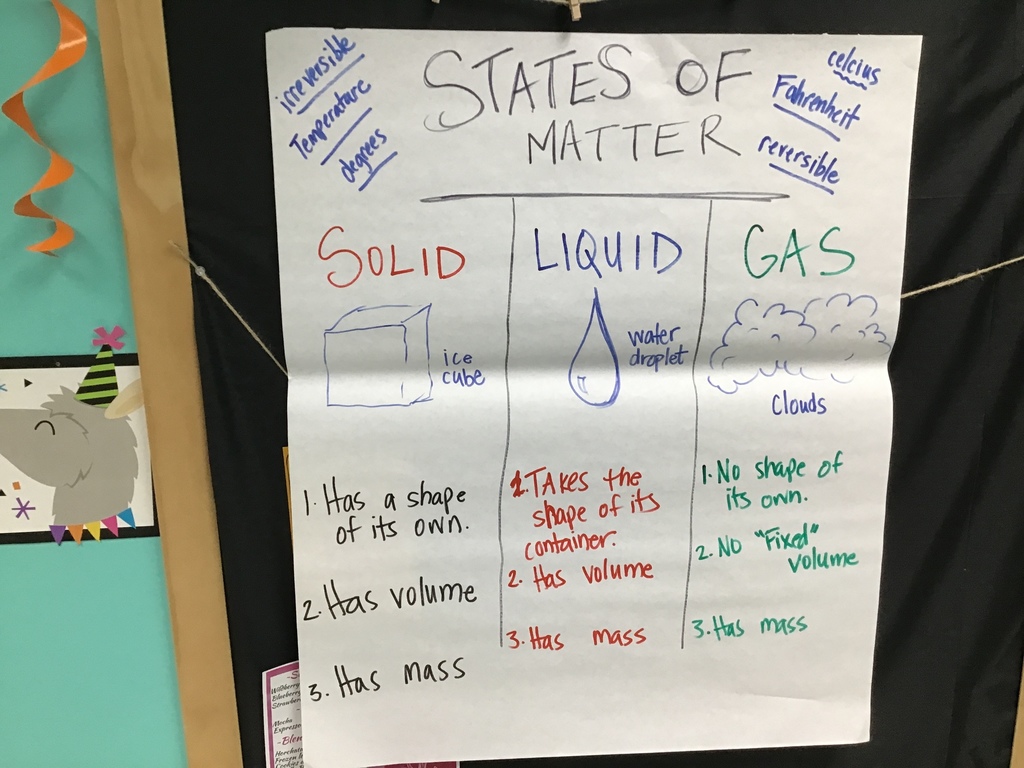 irreversible
Temperature
degrees
STATES OF
MATTER
celcius
Fahrenheit
reversible
SOLID
ice
cube
1. Has a shape
of its own.
2. Has volume
3. Has mass
LIQUID
water
droplet
1. TAKES the
shape of its
container.
2. Has volume
3. Has mass
GAS
Clouds
1. No shape of
its own.
2. No "Fixed"
volume
3. Has mass
Mocha